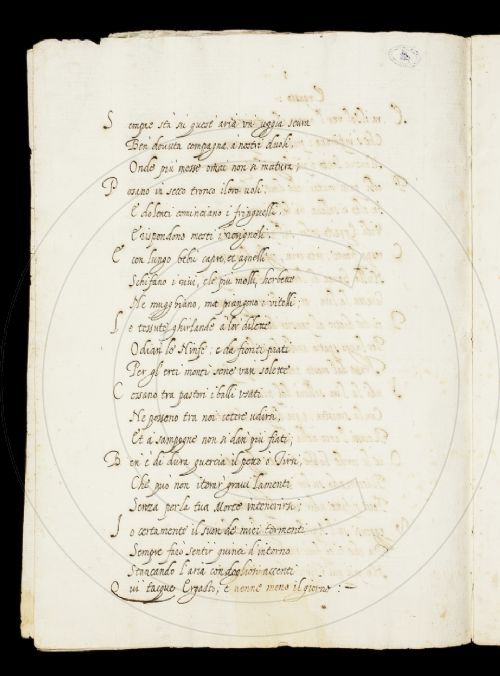 Sempre stà sù quest' aria un' uggia scura
Ben douuta compagna, a nostri duoli,
Onde più messe omai non si matura;
Posano in secco tronco i loro uoli,
E dolenti cominciano i fringuelli
E rispondono mesti i rosignoli.
E con lungo belar capre, et agnelli
Schifano i riui, e le più molli herbette
Ne mugghiano, ma piangono i vitelli;
Le tessute ghirlande a lor dilette
Odian le Ninfe; e da fioriti prati
Per gl' erti monti sene van solette
Cessano tra pastori i balli usati
Ne possono tra noi cetere udirsi,
Et a sampogne non si dan più fiati;
Ben' è di dura quercia il petto ò Tirsi,
Che può non iterar graui lamenti
Senza per la tua Morte intenerirsi;
Io certamente il suon de miei tormenti
Sempre farò sentir quinci d' intorno
Stancando l' aria con dogliosi accenti
Qui tacque Ergasto, e uenne meno il giorno :~